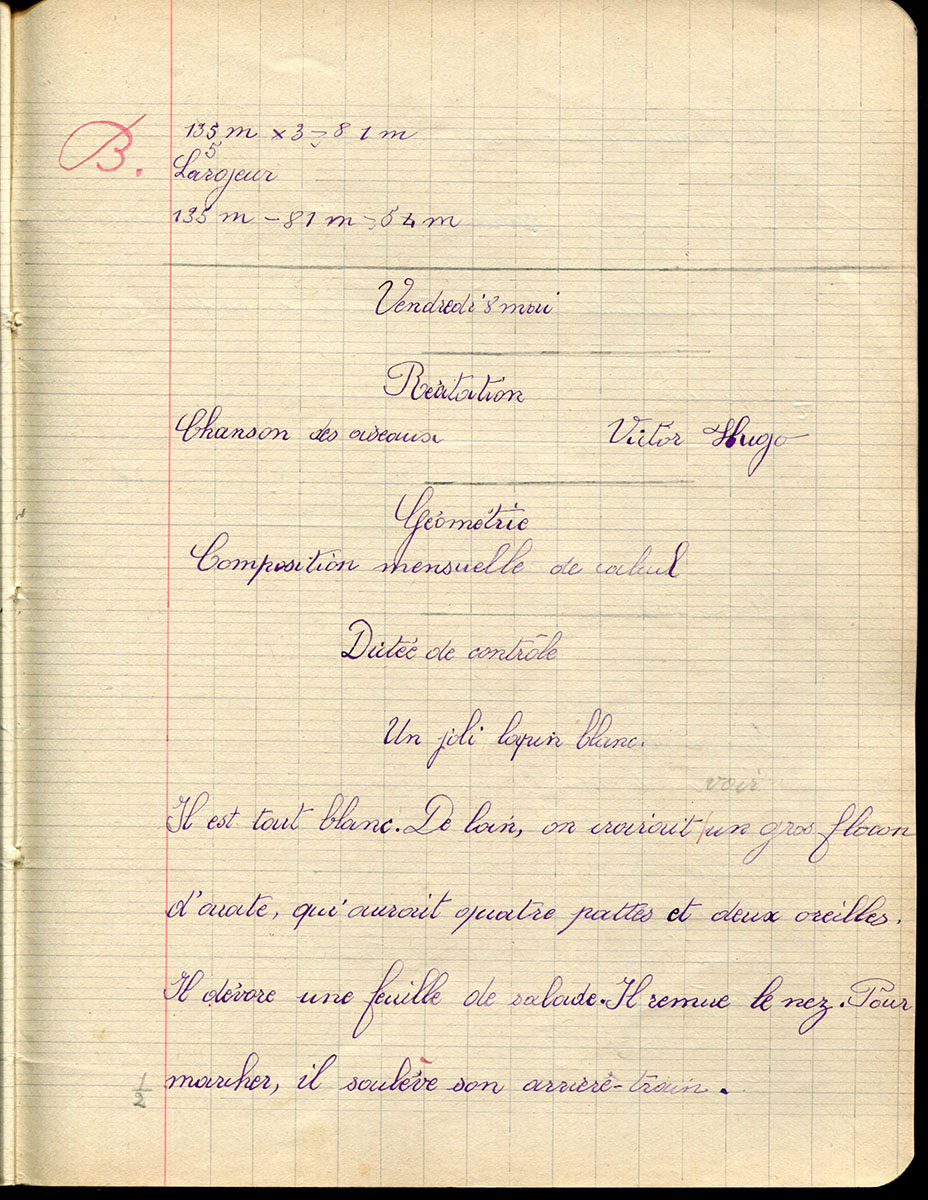 B.
135 m × 3 = 81 m
5
Largeur
135 m - 81 m = 54 m
Vendredi 8 mai
Récitation
Chanson des oiseaux Victor Hugo
Géométrie
Composition mensuelle de calcul
Dictée de contrôle
Un joli lapin blanc.
voir
Il est tout blanc. De loin, on croirait un gros flocon
d'ouate, qui aurait quatre pattes et deux oreilles.
Il dévore une feuille de salade. Il remue le nez. Pour
marcher, il soulève son arrière-train.
1/2